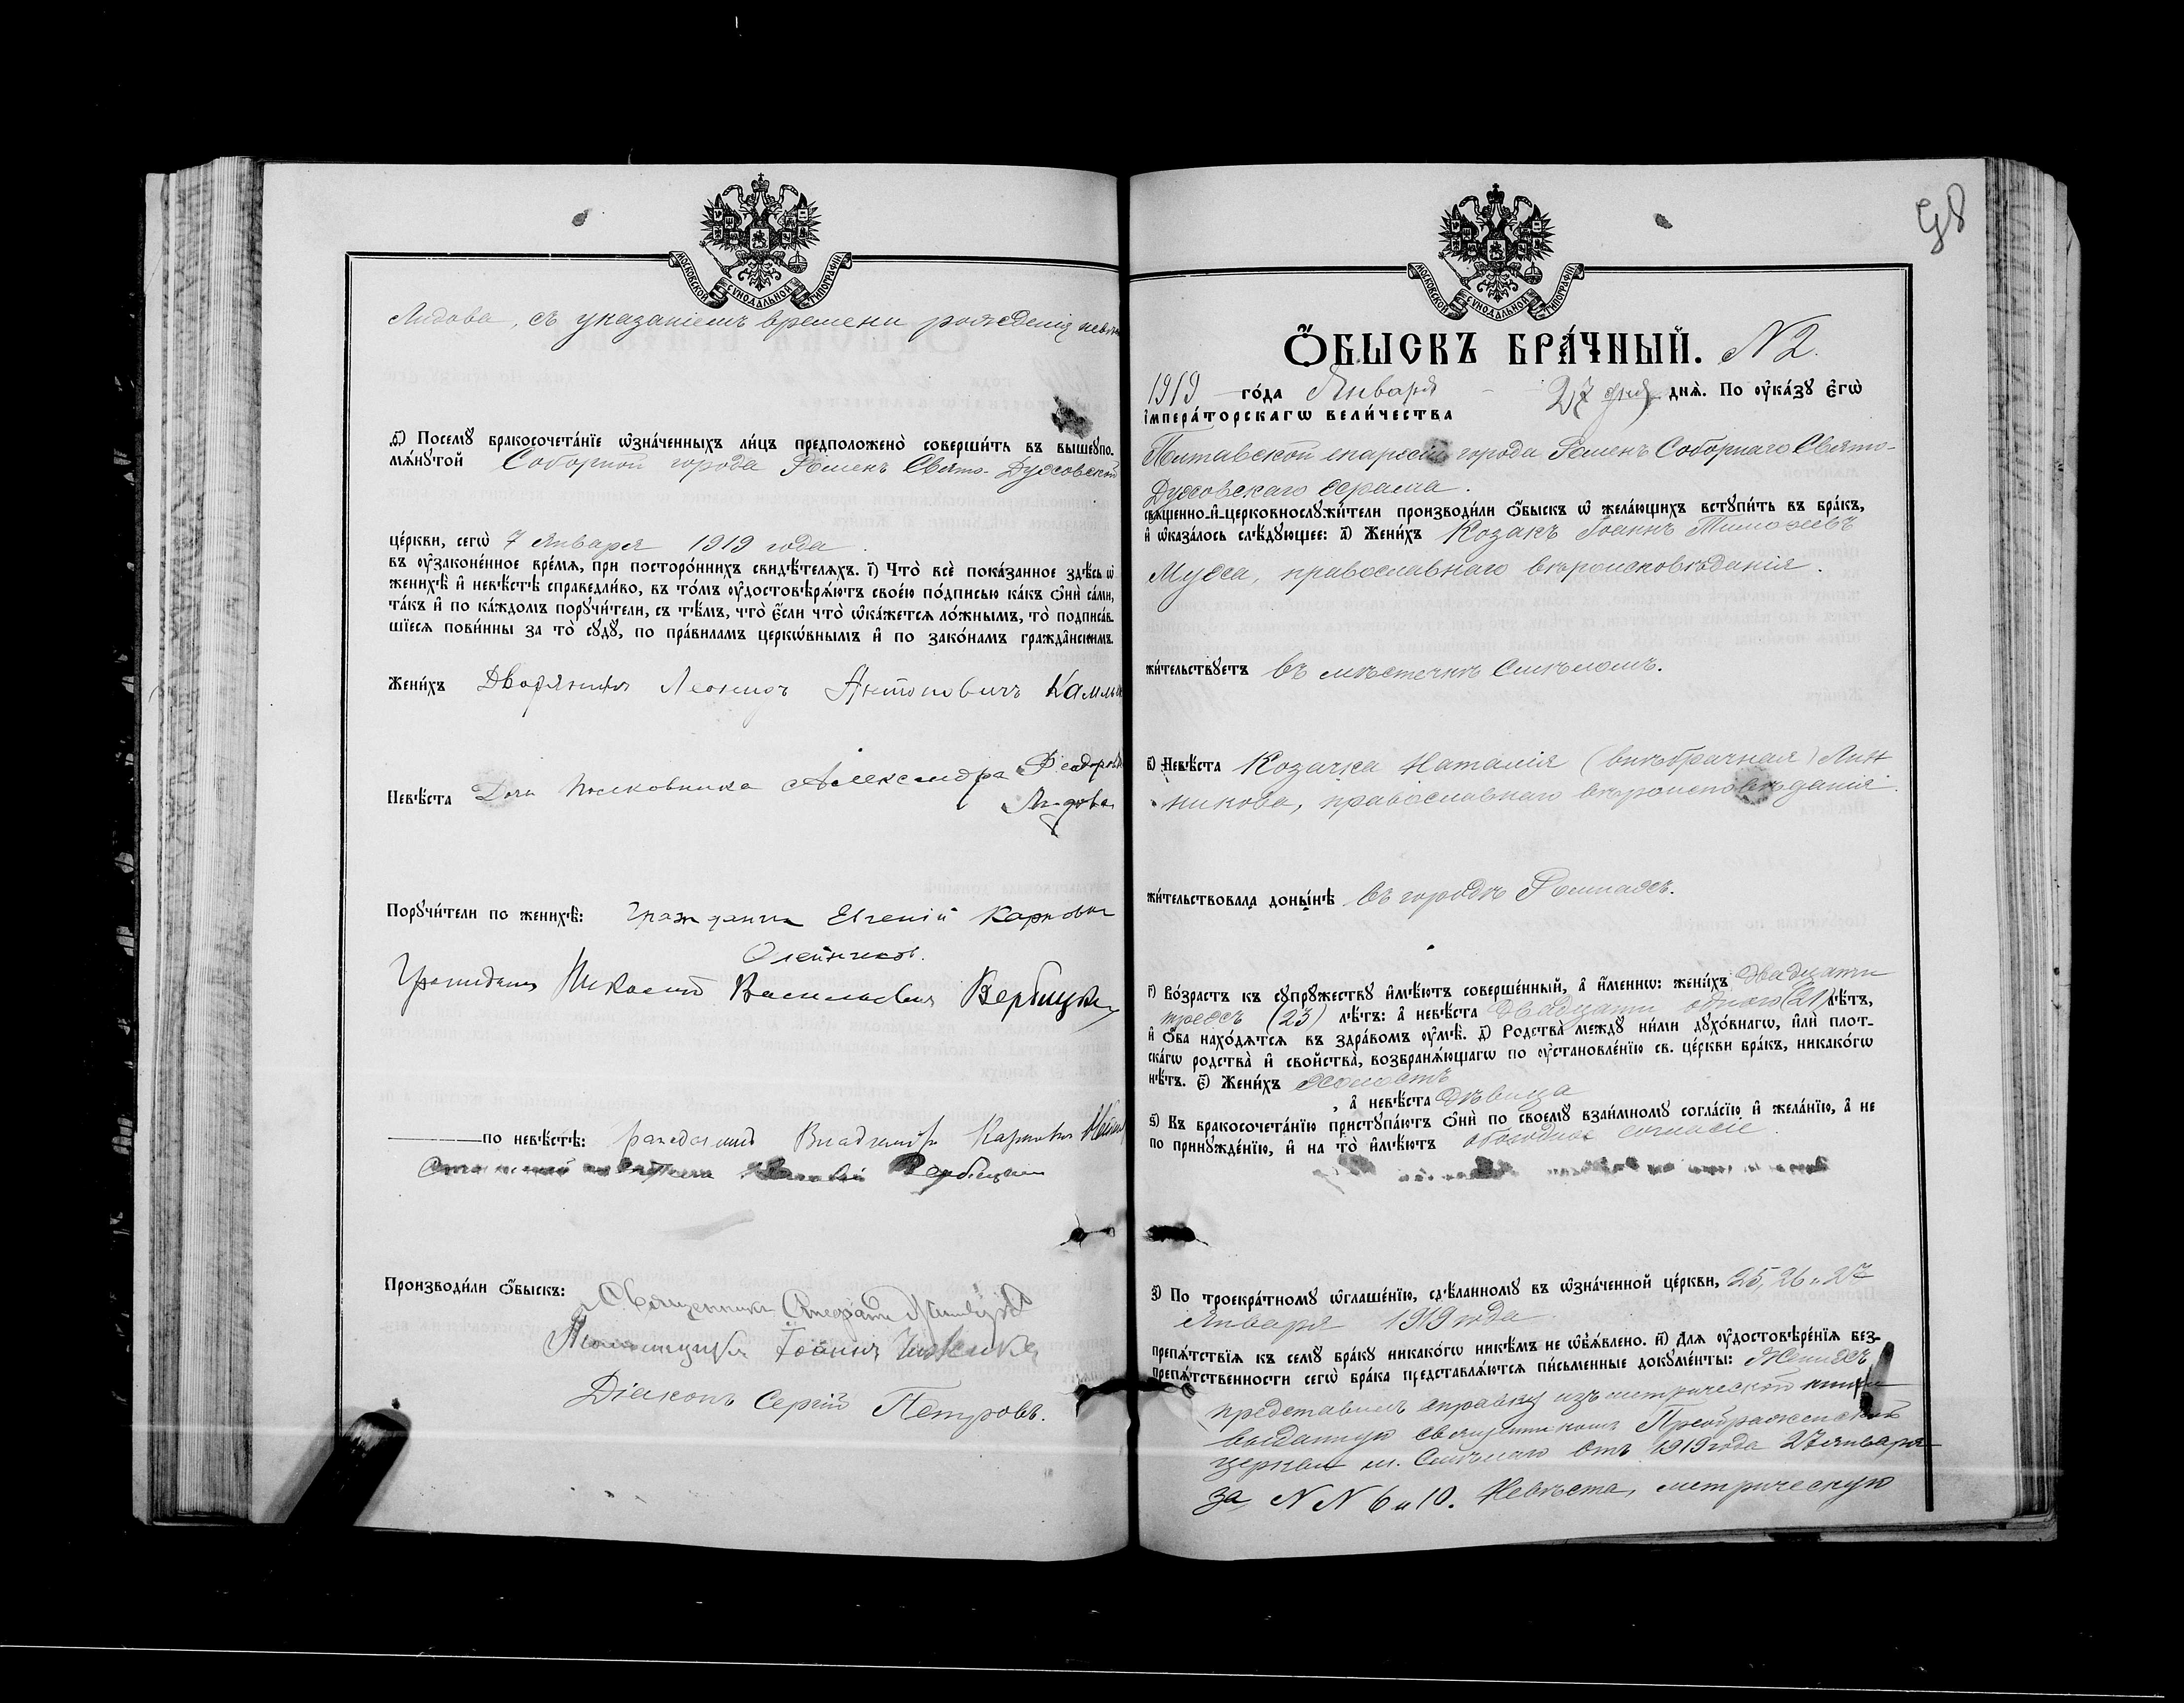 МОСКОВСКОЙ СУНОДАЛЬНОЙ ТИПОГРАФІИ
Лидова, съ указаніемъ времени рожденія невѣсты
д҃) Посемꙋ бракосочета́нїе ѡ҆зна́ченныхъ ли́цъ предположено̀ соверши́ть въ вышеꙋпо-
мѧ́нꙋтой Соборной города Роменъ Свято-Духовской
це́ркви, сегѡ̀ 7 Января 1919 года.
въ ᲂу҆зако́ненное вре́мѧ, при посторо́ннихъ свидѣ́телѧхъ. і҃) Что̀ всѐ пока́занное здѣ́сь ѡ҆
женихѣ̀ и҆ невѣ́стѣ справедли́во, въ то́мъ ᲂу҆достовѣрѧ́ютъ свое́ю по́дписью ка́къ ѻ҆нѝ са́ми,
та́къ и҆ по ка́ждомъ порꙋчи́тели, съ тѣ́мъ, что̀ є҆́сли что̀ ѡ҆ка́жетсѧ ло́жнымъ, то̀ подписа́в-
шїесѧ пови́нны за то̀ сꙋдꙋ̀, по пра́виламъ церкѡ́внымъ и҆ по зако́намъ гражда̂нскимъ.
Жени́хъ Дворянинъ Леонидъ Антоновичъ
Невѣ́ста Дочь Полковника Александра Феодоровна
Лидова
Порꙋчи́тели по женихѣ̀: Гражданинъ Евгеній Карповичъ
Олейников.
Гражданинъ Николай Васильевичъ Вербицкій
по невѣ́стѣ: гражданинъ Владимиръ Карповичъ
Вербицкій
Производи́ли ѻ҆́быскъ: Священникъ
Псаломщикъ Іоаннъ
Діаконъ Сергій Петровъ.
98
МОСКОВСКОЙ СУНОДАЛЬНОЙ ТИПОГРАФІИ
Ѻ҆́БЫСКЪ БРА́ЧНЫЙ. N 2.
1919 го́да Января 27 дня днѧ̀. По ᲂу҆ка́зꙋ є҆гѡ̀
і҆мпера́торскагѡ вели́чества
Полтавской епархіи города Роменъ Соборнаго Свято-
Духовскаго храма.
свѧще́нно-и҆-церковнослꙋжи́тели производи́ли ѻ҆́быскъ ѡ҆ жела́ющихъ встꙋпи́ть въ бра́къ,
и҆ ѡ҆каза́лось слѣ́дꙋющее: а҃) Жени́хъ Козакъ Іоаннъ Тимофеевъ
Муха, православнаго вѣроисповѣданія.
жи́тельствꙋетъ въ мѣстечкѣ Смѣломъ.
в҃) Невѣ́ста Козачка Наталія (внѣбрачная) Лин
никова, православнаго вѣроисповѣданія.
жи́тельствовала доны́нѣ въ городѣ Ромнахъ.
г҃) Во́зрастъ къ сꙋпрꙋ́жествꙋ и҆мѣ́ютъ соверше́нный, а҆ и҆́меннѡ: жени́хъ двадцати
трехъ (23) лѣ́тъ: а҆ невѣ́ста двадцати одного (21) лѣ́тъ,
и҆ ѻ҆́ба нахо́дѧтсѧ въ здра́вомъ ᲂу҆мѣ̀. д҃) Родства̀ междꙋ̀ ни́ми дꙋхо́внагѡ, и҆лѝ плот-
ска́гѡ родства̀ и҆ сво́йства, возбранѧ́ющагѡ по ᲂу҆становле́нїю св. це́ркви бра́къ, никако́гѡ
нѣ́тъ. є҃) Жени́хъ холостъ
, а҆ невѣ́ста дѣвица
ѕ҃) Къ бракосочета́нїю пристꙋпа́ютъ ѻ҆нѝ по своемꙋ̀ взаи́мномꙋ согла́сїю и҆ жела́нїю, а҆ не
по принꙋжде́нїю, и҆ на то̀ и҆мѣ́ютъ обоюдное согласіе.
з҃) По троекра́тномꙋ ѡ҆глаше́нїю, сдѣ́ланномꙋ въ ѡ҆зна́ченной це́ркви, 25, 26 и 27
Января 1919 года
препѧ́тствїѧ къ семꙋ̀ бра́кꙋ никако́гѡ никѣ́мъ не ѡ҆б̾ѧ́влено. и҃) Длѧ ᲂу҆достовѣре́нїѧ без-
препѧ́тственности сегѡ̀ бра́ка представлѧ́ютсѧ пи́сьменные докꙋме́нты: Женихъ
представилъ справку изъ метрической книги
выданную священникомъ Преображенской
церкви м. Смѣлаго отъ 1919 года 27 января
за N N 6 и 10. Невѣста, метрическую